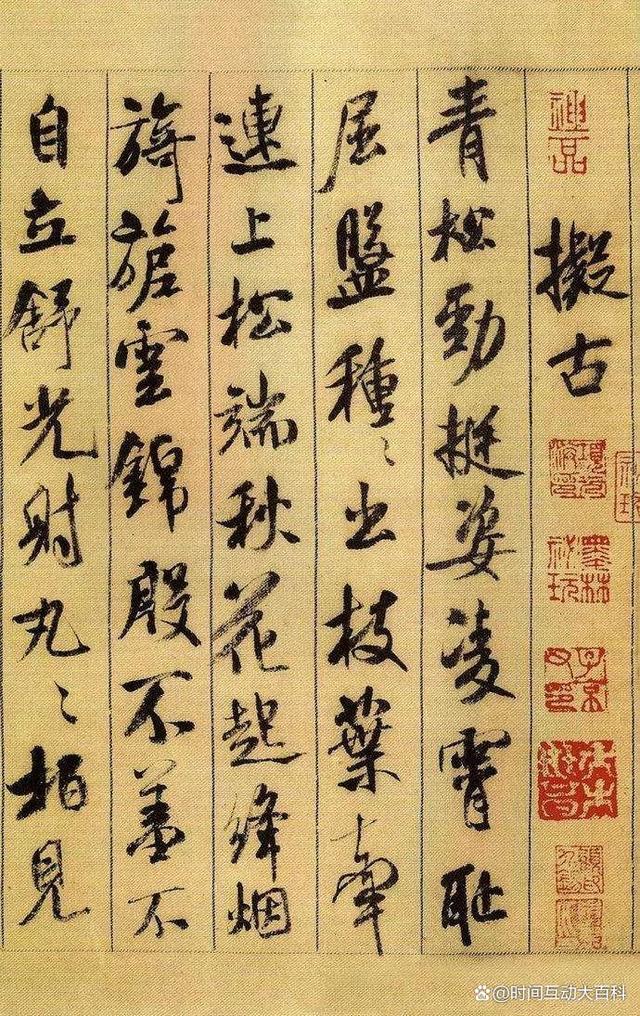 擬古
青松勁挺姿凌霄恥
屈盤種〻出枝葉牽
連上松端秋花起絳烟
旖旎雲錦殷不羞不
自立舒光射丸〻柏見
@时间互动大百科